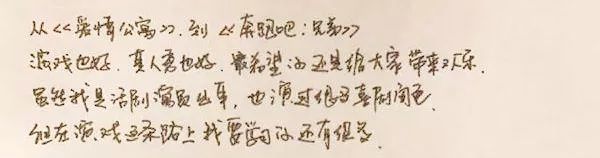 从《爱情公寓》.到《奔跑吧:兄弟》
演戏也好.真人秀也好.最希望的还是给大家带来欢乐.
虽然我是话剧演员出身,也演过很多喜剧角色.
但在演戏这条路上我要学习的还有很多.